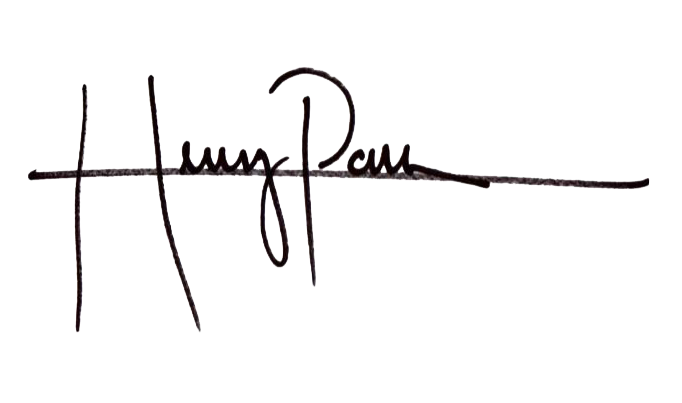 Henry Pan